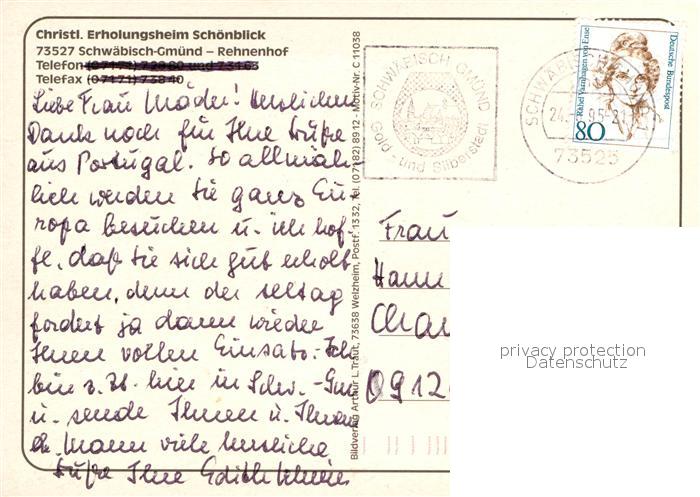 Christl. Erholungsheim Schönblick
73527 Schwäbisch-Gmünd – Rehnenhof
Telefon (07171) 72860 und 73463
Telefax (07171) 73840
Liebe Frau Mäder! Herzlichen
Dank noch für Ihre Grüße
aus Portugal. So allmäh-
lich werden Sie ganz Eu-
ropa besuchen u. ich hof-
fe, daß Sie sich gut erholt
haben, denn der Alltag
fordert ja dann wieder
Ihren vollen Einsatz. Ich
bin z. Zt. hier in Schw.-Gmü
u. sende Ihnen u. Ihrem
Mann viele herzliche
Grüße Ihre Edith
Bildverlag Arthur L. Traut, 73638 Welzheim, Postf. 1332, Tel. (07182) 8912 - Motiv-Nr. C 11038
SCHWÄBISCH GMÜND
Gold- und Silberstadt
SCHWÄBISCH
24.
95-21
73525
Rahel Varnhagen von Ense
Deutsche Bundespost
80
Frau
Hann
0912
privacy protection
Datenschutz